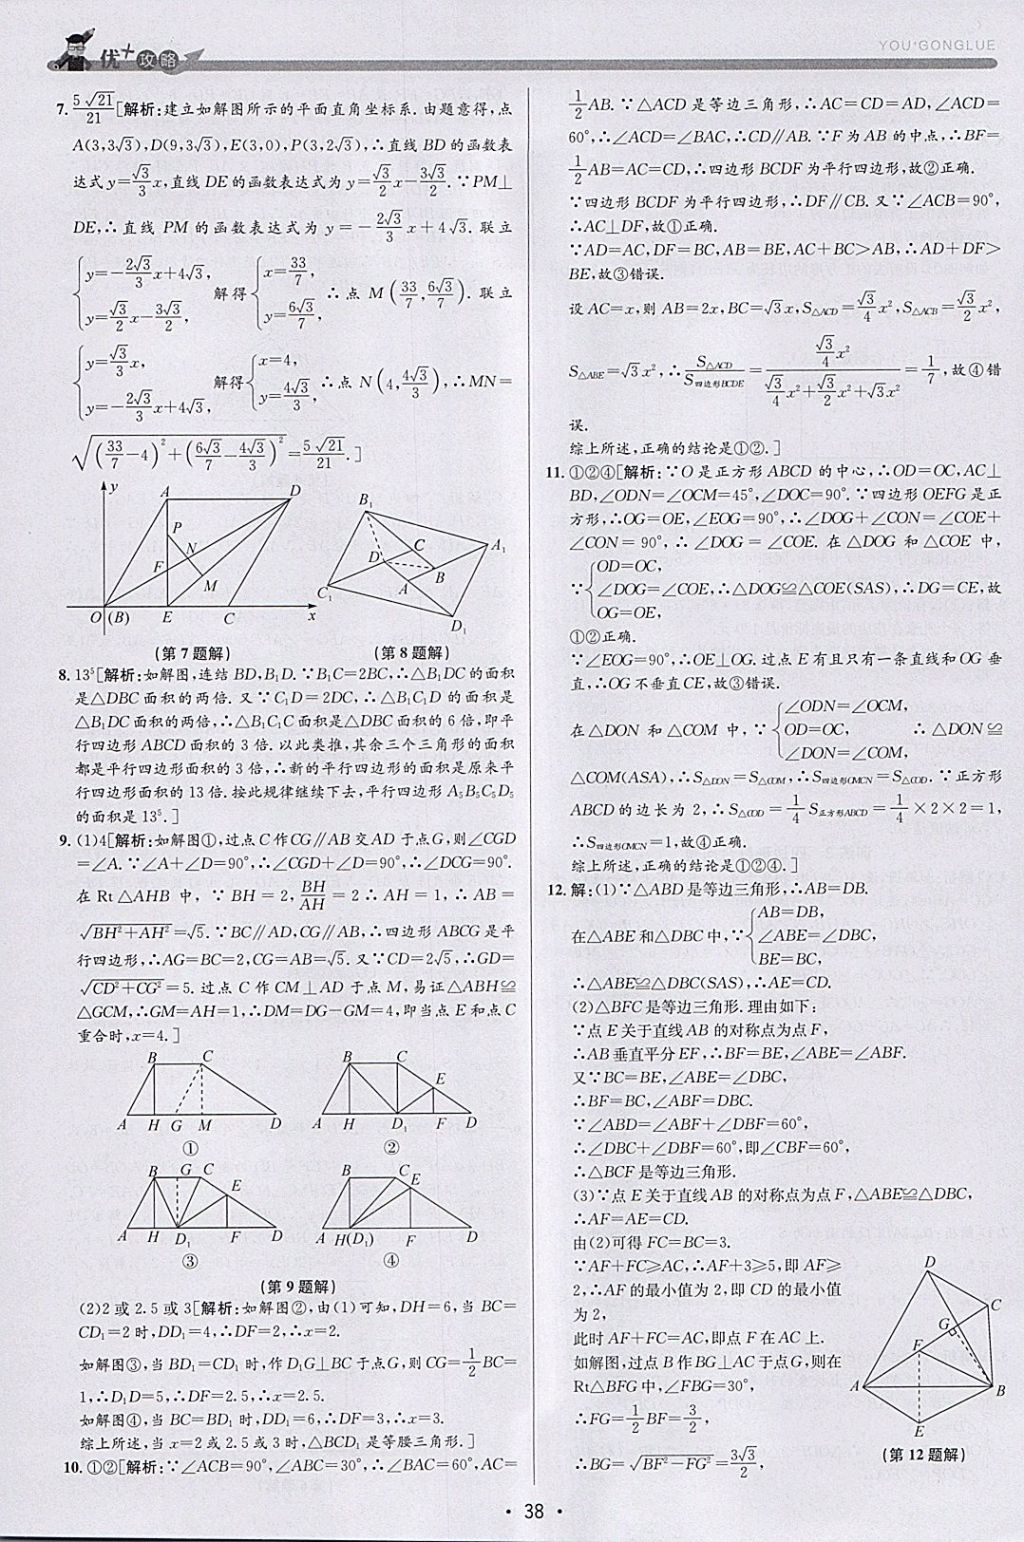 优+攻略
YOU+GONGLUE
7. 5√21/21[解析:建立如解图所示的平面直角坐标系.由题意得,点
A(3,3√3),D(9,3√3),E(3,0),P(3,2√3),∴直线 BD 的函数表
达式y=√3/3x,直线 DE 的函数表达式为 y=√3/2x-3√3/2.∵PM⊥
DE,∴直线 PM 的函数表达式为 y=-2√3/3x+4√3.联立
{y=-2√3/3x+4√3, y=√3/2x-3√3/2, 解得{x=33/7, y=6√3/7, ∴点 M(33/7,6√3/7).联立
{y=√3/3x, y=-2√3/3x+4√3, 解得{x=4, y=4√3/3, ∴点 N(4,4√3/3),∴MN=
√((33/7-4)²+(6√3/7-4√3/3)²)=5√21/21.]
y A D P N F M O (B) E C x
B₁ C A₁ D B A C₁ D₁
(第 7 题解) (第 8 题解)
8. 13⁵[解析:如解图,连结 BD,B₁D.∵B₁C=2BC,∴△B₁DC的面积
是△DBC面积的两倍.又∵C₁D=2DC,∴△B₁C₁D的面积是
△B₁DC面积的两倍,∴△B₁C₁C面积是△DBC面积的 6 倍,即平
行四边形 ABCD 面积的 3 倍.以此类推,其余三个三角形的面积
都是平行四边形面积的 3 倍,∴新的平行四边形的面积是原来平
行四边形面积的 13 倍.按此规律继续下去,平行四边形 A₅B₅C₅D₅
的面积是 13⁵.]
9. (1)4[解析:如解图①,过点C作CG∥AB交AD于点G,则∠CGD
=∠A.∵∠A+∠D=90°,∴∠CGD+∠D=90°,∴∠DCG=90°.
在 Rt△AHB 中,∵BH=2,BH/AH=2∴AH=1,∴AB=
√(BH²+AH²)=√5.∵BC∥AD,CG∥AB,∴四边形ABCG是平
行四边形,∴AG=BC=2,CG=AB=√5.又∵CD=2√5,∴GD=
√(CD²+CG²)=5.过点 C 作 CM⊥AD 于点 M,易证△ABH≌
△GCM,∴GM=AH=1,∴DM=DG-GM=4,即当点 E 和点 C
重合时,x=4.]
B C B C E
A H G M D A H D₁ F D
① ②
B G C E B C E
A H D₁ F D A H(D₁) F D
③ ④
(第 9 题解)
(2)2 或 2.5 或 3[解析:如解图②,由(1)可知,DH=6,当 BC=
CD₁=2时,DD₁=4,∴DF=2,∴x=2.
如解图③,当 BD₁=CD₁ 时,作 D₁G⊥BC于点G,则CG=1/2BC=
1,∴D₁D=5,∴DF=2.5,∴x=2.5.
如解图④,当 BC=BD₁ 时,DD₁=6,∴DF=3,∴x=3.
综上所述,当 x=2 或 2.5 或 3 时,△BCD₁ 是等腰三角形.]
10. ①②[解析:∵∠ACB=90°,∠ABC=30°,∴∠BAC=60°,AC=
1/2AB.∵△ACD是等边三角形,∴AC=CD=AD,∠ACD=
60°,∴∠ACD=∠BAC,∴CD∥AB.∵F为AB的中点,∴BF=
1/2AB=AC=CD,∴四边形 BCDF 为平行四边形,故②正确.
∵四边形BCDF为平行四边形,∴DF∥CB.又∵∠ACB=90°,
∴AC⊥DF,故①正确.
∵AD=AC,DF=BC,AB=BE,AC+BC>AB,∴AD+DF>
BE,故③错误.
设AC=x,则 AB=2x,BC=√3x,S△ACD=√3/4x²,S△ACB=√3/2x²,
S△ABE=√3x²,∴S△ACD/S四边形BCDE=(√3/4x²)/(√3/4x²+√3/2x²+√3x²)=1/7,故④错
误.
综上所述,正确的结论是①②.]
11. ①②④[解析:∵O是正方形ABCD的中心,∴OD=OC,AC⊥
BD,∠ODN=∠OCM=45°,∠DOC=90°.∵四边形OEFG是正
方形,∴OG=OE,∠EOG=90°,∴∠DOG+∠CON=∠COE+
∠CON=90°,∴∠DOG=∠COE.在△DOG和△COE中,
∵{OD=OC, ∠DOG=∠COE, OG=OE, ∴△DOG≌△COE(SAS),∴DG=CE,故
①②正确.
∵∠EOG=90°,∴OE⊥OG.过点 E 有且只有一条直线和OG垂
直,∴OG不垂直CE,故③错误.
在△DON和△COM中,∵{∠ODN=∠OCM, OD=OC, ∠DON=∠COM, ∴△DON≌
△COM(ASA),∴S△DON=S△COM,∴S四边形OMCN=S△COD.∵正方形
ABCD的边长为 2,∴S△COD=1/4S正方形ABCD=1/4×2×2=1,
∴S四边形OMCN=1,故④正确.
综上所述,正确的结论是①②④.]
12. 解:(1)∵△ABD是等边三角形,∴AB=DB.
在△ABE和△DBC中,∵{AB=DB, ∠ABE=∠DBC, BE=BC,
∴△ABE≌△DBC(SAS),∴AE=CD.
(2)△BFC是等边三角形.理由如下:
∵点E关于直线AB的对称点为点F,
∴AB垂直平分EF,∴BF=BE,∠ABE=∠ABF.
又∵BC=BE,∠ABE=∠DBC,
∴BF=BC,∠ABF=∠DBC.
∵∠ABD=∠ABF+∠DBF=60°,
∴∠DBC+∠DBF=60°,即∠CBF=60°,
∴△BCF是等边三角形.
(3)∵点E关于直线AB的对称点为点F,△ABE≌△DBC,
∴AF=AE=CD.
由(2)可得FC=BC=3.
∵AF+FC≥AC,∴AF+3≥5,即 AF≥
2,∴AF的最小值为 2,即CD的最小值
为 2,
此时 AF+FC=AC,即点F在AC上.
如解图,过点B作BG⊥AC于点G,则在
Rt△BFG中,∠FBG=30°,
∴FG=1/2BF=3/2,
∴BG=√(BF²-FG²)=3√3/2,
D C G F A B E
(第 12 题解)
· 38 ·